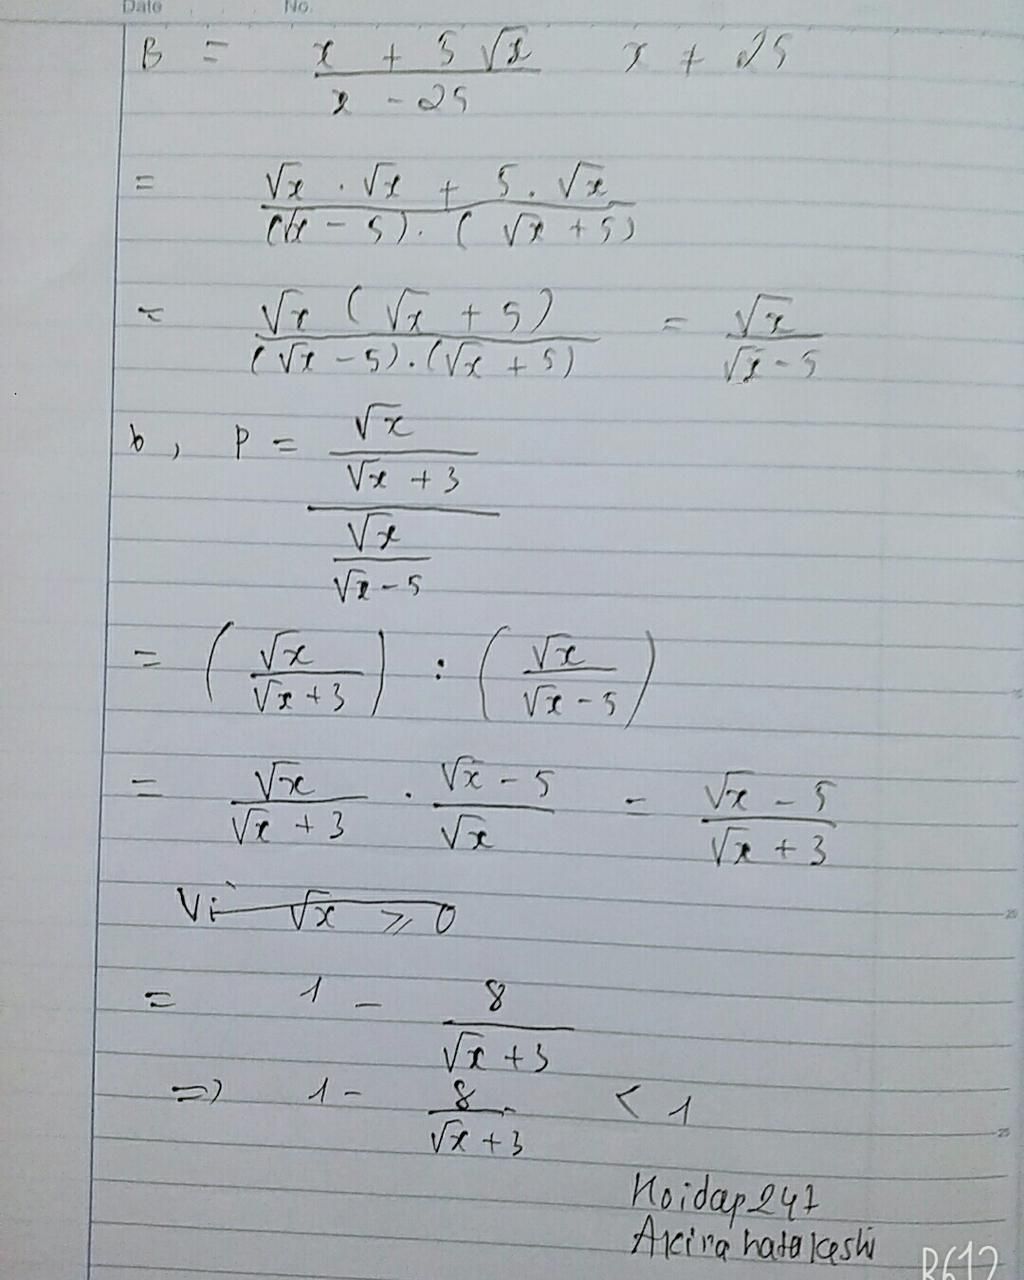 Date No.
B = x + 5 √x / x - 25 x ≠ 25
= √x . √x + 5 . √x / (√x - 5) . ( √x + 5)
= √x ( √x + 5 ) / (√x - 5) . (√x + 5) = √x / √x - 5
b, P = √x / √x + 3 / √x / √x - 5
= ( √x / √x + 3 ) : ( √x / √x - 5 )
= √x / √x + 3 . √x - 5 / √x = √x - 5 / √x + 3
Vì √x ⩾ 0
= 1 - 8 / √x + 3
=> 1 - 8 / √x + 3 < 1
Hoidap247
Akira hatakeshi
R612